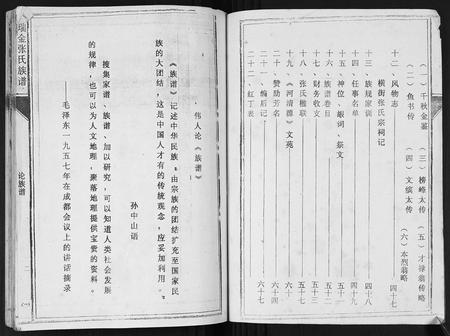 （一）千秋金鉴　（三）榜峰太传　（五）才禄翁传略
（二）鱼书传　（四）文缤太传　（六）本烈翁略
十二、风物志　四十七
横街张氏宗祠记
十三、族规家训　四十八
十四、任事名单　四十九
十五、神位、嘏词、祭文　五十
十六、族谱卷目　五十
十七、财务收支　五十
十八、张氏楹联　五十三
十九、《河清德》文苑　五十五
二十、赞助芳名　六十
二十一、编后记　六十七
二十二、红丁表　六十七
瑞金张氏族谱
论族谱
伟人论《族谱》
《族谱》记述中华民族“由宗族的团结扩充至国家民
族的大团结，这是中国人才有的传统观念，应妥加利用。”
孙中山语
搜集家谱、族谱、加以研究，可以知道人类社会发展
的规律，也可以为人文地理，聚落地理提供宝贵的资料。
——毛泽东一九五七年在成都会议上的讲话摘录